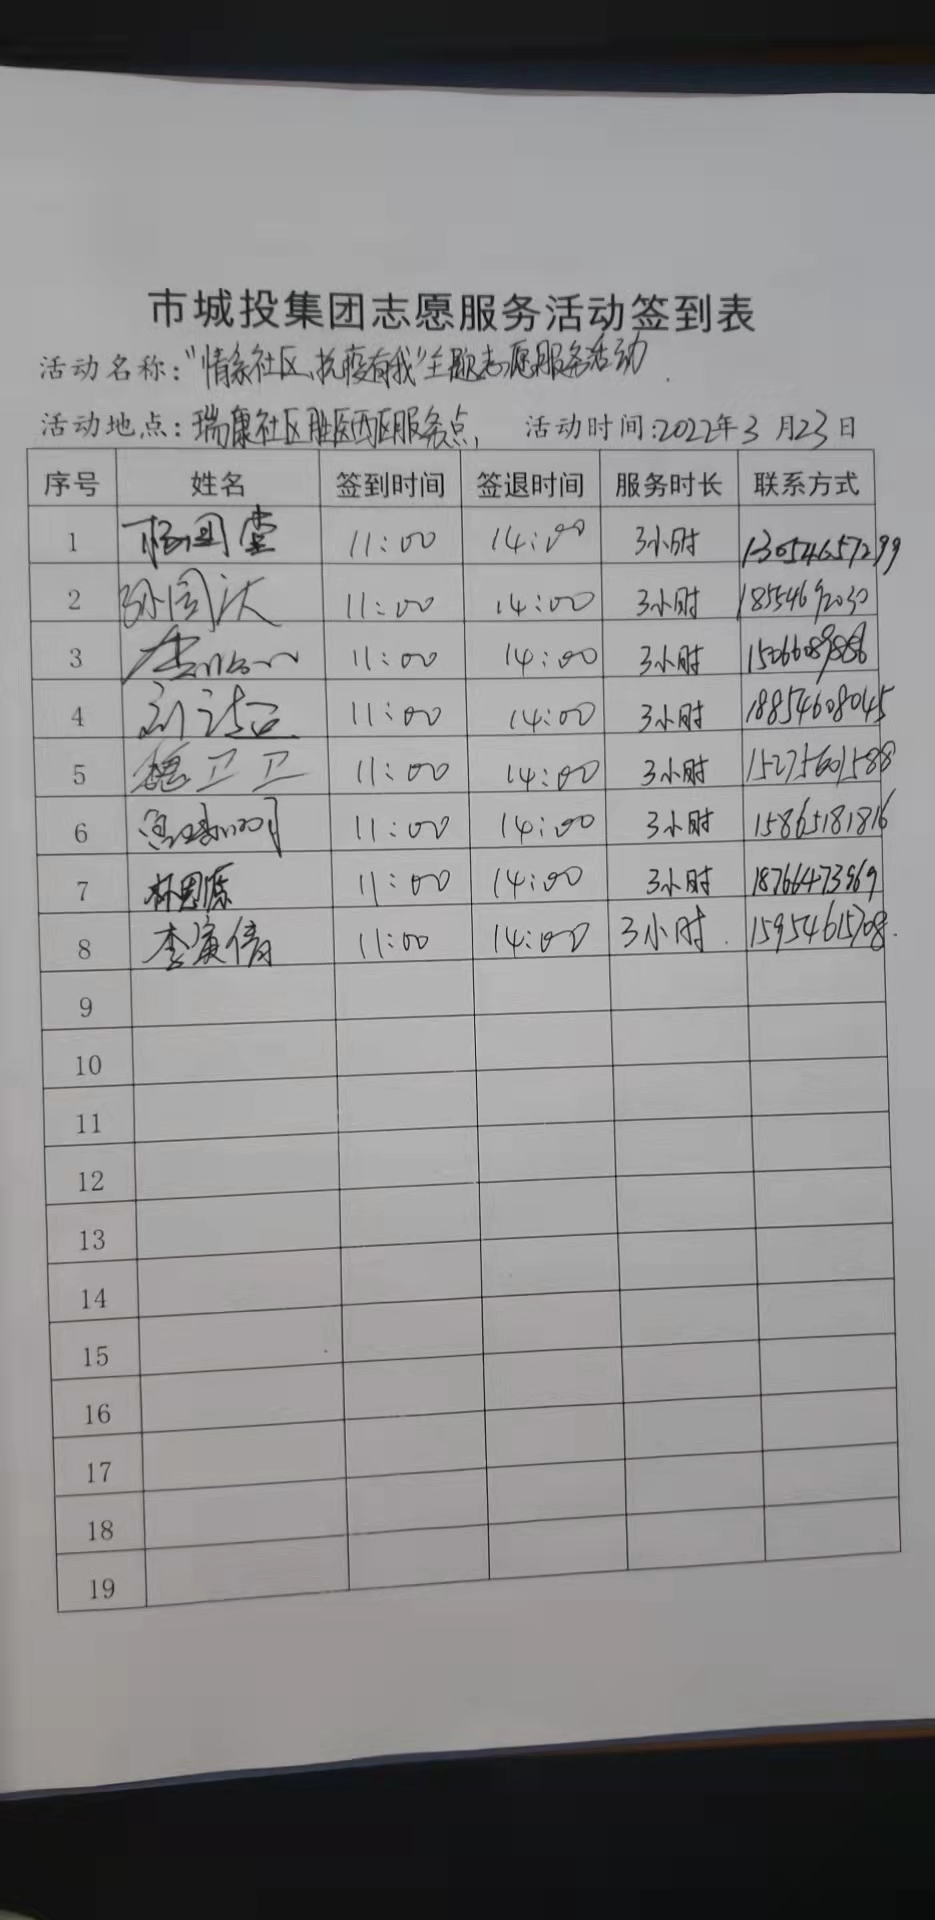 市城投集团志愿服务活动签到表
活动名称："情系社区、抗疫有我"主题志愿服务活动.
活动地点：瑞康社区胜医西区服务点, 活动时间:2022年3月23日
序号 姓名 签到时间 签退时间 服务时长 联系方式
1 杨国堂 11:00 14:00 3小时 13054657299
2 11:00 14:00 3小时 18554692030
3 11:00 14:00 3小时
4 刘洁 11:00 14:00 3小时 18854608045
5 魏卫卫 11:00 14:00 3小时 15275601588
6 11:00 14:00 3小时 15865181816
7 林思源 11:00 14:00 3小时 18766473969
8 李寅倩 11:00 14:00 3小时. 15954615708.
9
10
11
12
13
14
15
16
17
18
19